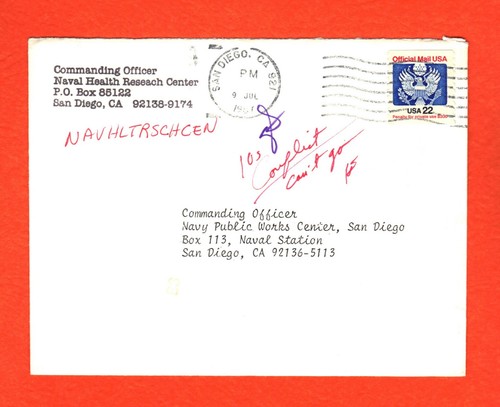 Commanding Officer
Naval Health Reseach Center
P.O. Box 85122
San Diego, CA 92138-9174
NAVHLTRSCHCEN
SAN DIEGO, CA 921
PM
9 JUL
Official Mail USA
USA 22
Penalty for private use $300
10s
Conflict
can't go
Commanding Officer
Navy Public Works Center, San Diego
Box 113, Naval Station
San Diego, CA 92136-5113